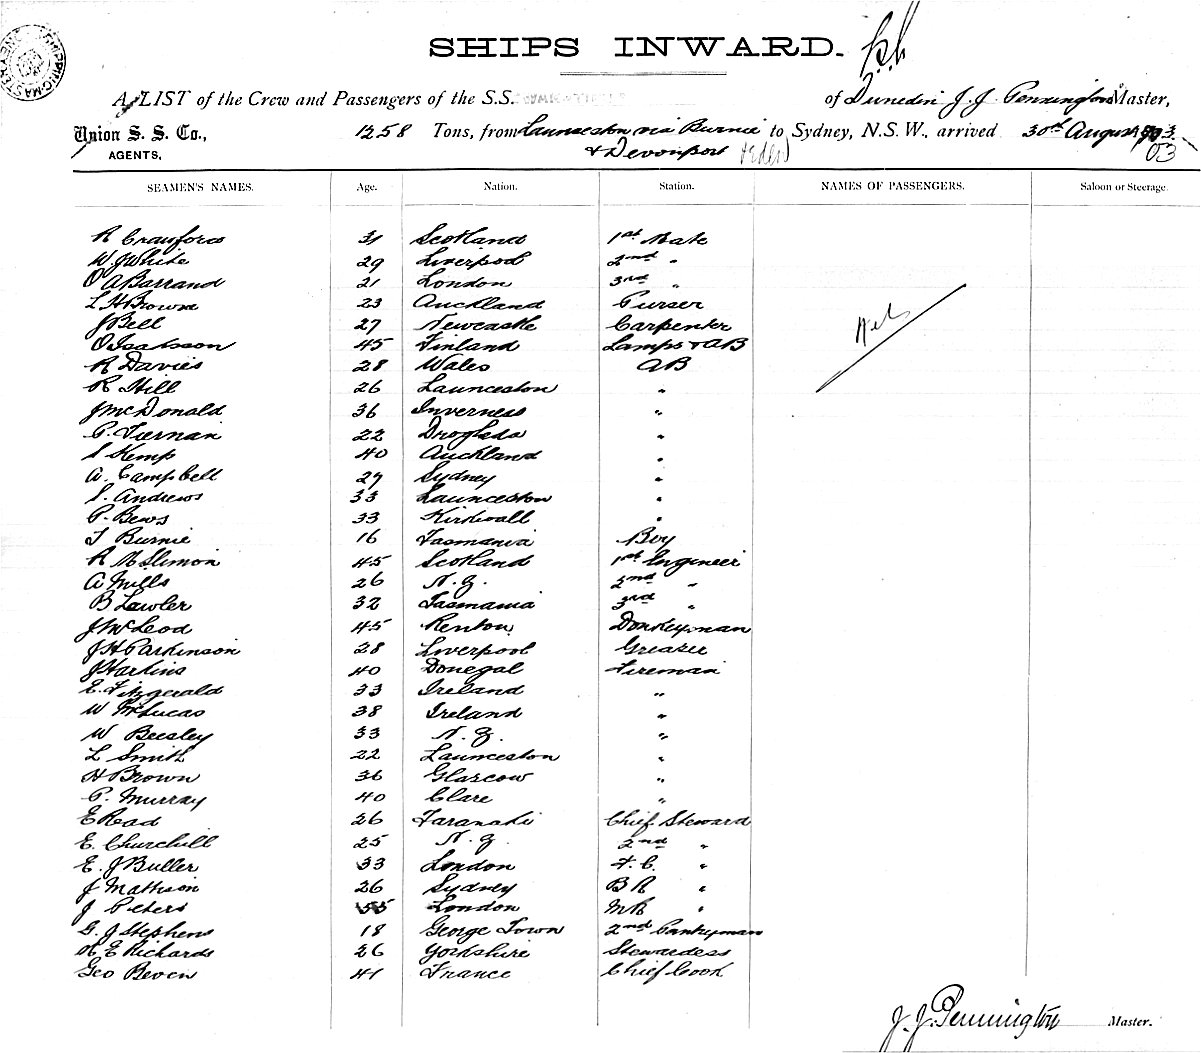 SHIPS INWARD.
A LIST of the Crew and Passengers of the S.S. of Dunedin J. J. Pennington Master,
Union S. S. Co., 1258 Tons, from Launceston via Burnie to Sydney, N.S.W., arrived 30th August 1903
AGENTS. & Devonport 03
SEAMEN'S NAMES. Age. Nation. Station. NAMES OF PASSENGERS. Saloon or Steerage.
R Crawford 31 Scotland 1st Mate
W J White 29 Liverpool 2nd "
O A Barrand 21 London 3rd "
L H Brown 23 Auckland Purser
J Bell 27 Newcastle Carpenter Nil
O Isaksson 45 Finland Lamps & AB
R Davies 28 Wales AB
R Hill 26 Launceston "
J McDonald 36 Inverness "
P. Tiernan 22 Drogheda "
S Kemp 40 Auckland "
A. Campbell 27 Sydney "
S. Andrews 33 Launceston "
P. Bews 33 Kirkwall "
T Burnie 16 Tasmania Boy
R McSlimon 45 Scotland 1st Engineer
A Mills 26 N. Z. 2nd "
B Lawler 32 Tasmania 3rd "
J McLeod 45 Renton Donkeyman
J H Parkinson 28 Liverpool Greaser
J Harkins 40 Donegal Fireman
E. Fitzgerald 33 Ireland "
W McLucas 38 Ireland "
W Beesley 33 N. Z. "
L Smith 22 Launceston "
H Brown 36 Glascow "
P. Murray 40 Clare "
E Read 26 Taranaki Chief Steward
E. Churchill 25 N. Z. 2nd "
E. J Buller 33 London F. C. "
J Mathison 26 Sydney B R "
J Peters 55 London M R "
G. J Stephens 18 George Town 2nd Pantryman
H E Richards 26 Yorkshire Stewardess
Geo Beven 41 France Chief Cook
J. J. Pennington Master.